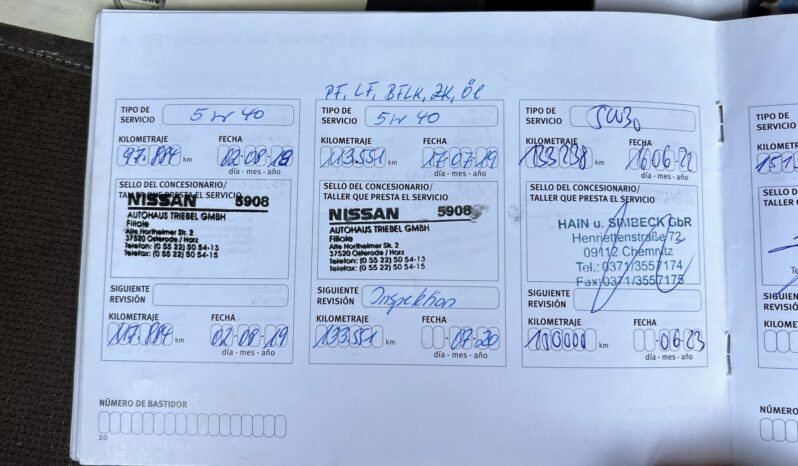 PF, LF, BFLK, ZK, Öl
TIPO DE
SERVICIO
5 w 40
KILOMETRAJE FECHA
97.884 km 02-08-18
día - mes - año
SELLO DEL CONCESIONARIO/
TALLER QUE PRESTA EL SERVICIO
NISSAN 5908
AUTOHAUS TRIEBEL GMBH
Filiale
Alte Northeimer Str. 2
37520 Osterode / Harz
Telefon: (0 55 22) 50 54-13
Telefax: (0 55 22) 50 54-15
SIGUIENTE
REVISIÓN
KILOMETRAJE FECHA
117.884 km 02-08-19
día - mes - año
TIPO DE
SERVICIO
5 w 40
KILOMETRAJE FECHA
113.551 km 17-07-19
día - mes - año
SELLO DEL CONCESIONARIO/
TALLER QUE PRESTA EL SERVICIO
NISSAN 5908
AUTOHAUS TRIEBEL GMBH
Filiale
Alte Northeimer Str. 2
37520 Osterode / Harz
Telefon: (0 55 22) 50 54-13
Telefax: (0 55 22) 50 54-15
SIGUIENTE
REVISIÓN
Inspektion
KILOMETRAJE FECHA
133.551 km -07-20
día - mes - año
TIPO DE
SERVICIO
5W30
KILOMETRAJE FECHA
133238 km 16-06-22
día - mes - año
SELLO DEL CONCESIONARIO/
TALLER QUE PRESTA EL SERVICIO
HAIN u. SIMBECK GbR
Henriettenstraße 72
09112 Chemnitz
Tel.: 0371/3557174
Fax: 0371/3557175
SIGUIENTE
REVISIÓN
KILOMETRAJE FECHA
km -06-23
día - mes - año
TIPO DE
SERVICIO
KILOMETRAJE
SELLO DEL
TALLER QUE
SIGUIENTE
REVISIÓN
KILOMET
NÚMERO DE BASTIDOR
20
NÚMERO